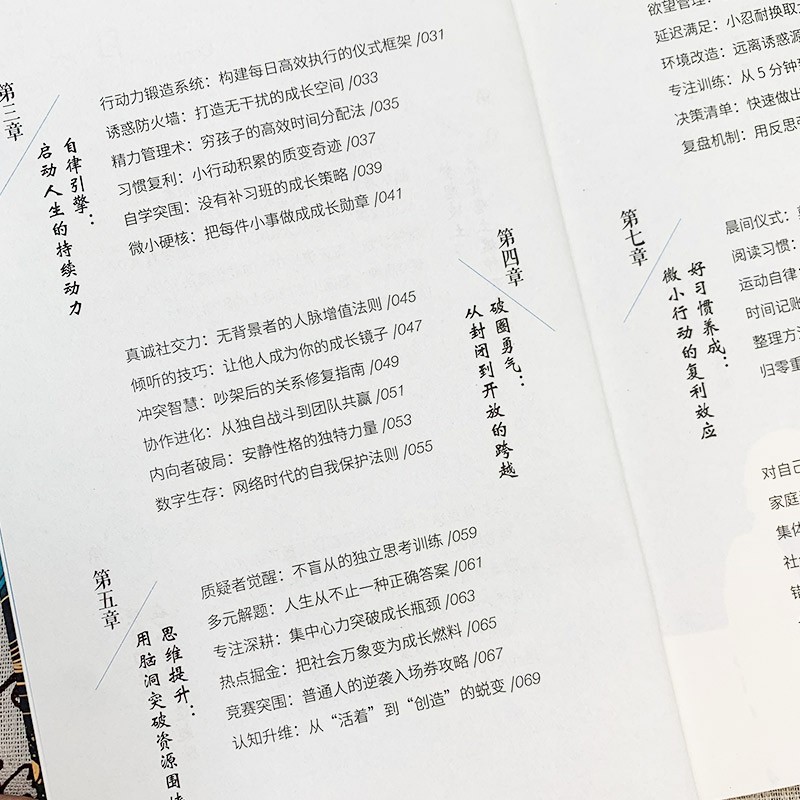 第三章
自律引擎：
启动人生的持续动力
行动力锻造系统：构建每日高效执行的仪式框架 /031
诱惑防火墙：打造无干扰的成长空间 /033
精力管理术：穷孩子的高效时间分配法 /035
习惯复利：小行动积累的质变奇迹 /037
自学突围：没有补习班的成长策略 /039
微小硬核：把每件小事做成成长勋章 /041
第四章
破圈勇气：
从封闭到开放的跨越
真诚社交力：无背景者的人脉增值法则 /045
倾听的技巧：让他人成为你的成长镜子 /047
冲突智慧：吵架后的关系修复指南 /049
协作进化：从独自战斗到团队共赢 /051
内向者破局：安静性格的独特力量 /053
数字生存：网络时代的自我保护法则 /055
第五章
思维提升：
用脑洞突破资源围
质疑者觉醒：不盲从的独立思考训练 /059
多元解题：人生从不止一种正确答案 /061
专注深耕：集中心力突破成长瓶颈 /063
热点掘金：把社会万象变为成长燃料 /065
竞赛突围：普通人的逆袭入场券攻略 /067
认知升维：从“活着”到“创造”的蜕变 /069
欲望管理：
延迟满足：小忍耐换取
环境改造：远离诱惑源
专注训练：从5分钟
决策清单：快速做出
复盘机制：用反思
第七章
好习惯养成：
微小行动的复利效应
晨间仪式：
阅读习惯：
运动自律：
时间记账
整理方
归零重
对自己
家庭
集体
社